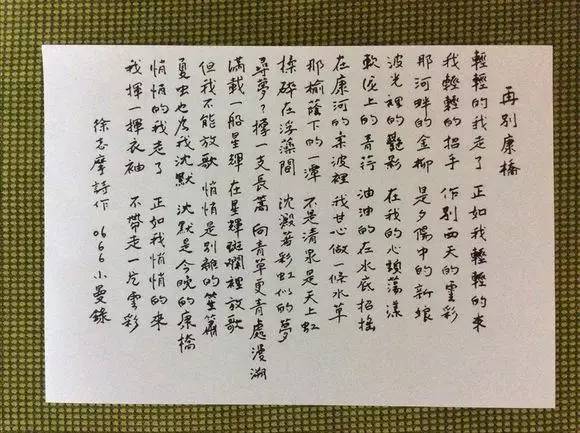 再別康橋
輕輕的我走了 正如我輕輕的來
我輕輕的招手 作別西天的雲彩
那河畔的金柳 是夕陽中的新娘
波光裡的艷影 在我的心頭蕩漾
軟泥上的青荇 油油的在水底招搖
在康河的柔波裡 我甘心做一條水草
那榆蔭下的一潭 不是清泉是天上虹
揉碎在浮藻間 沈澱著彩虹似的夢
尋夢？撐一支長蒿 向青草更青處漫溯
滿載一船星輝 在星輝斑斕裡放歌
但我不能放歌 悄悄是別離的笙簫
夏虫也為我沈默 沈默是今晚的康橋
悄悄的我走了 正如我悄悄的來
我揮一揮衣袖 不帶走一片雲彩
徐志摩詩作 0666 小曼錄